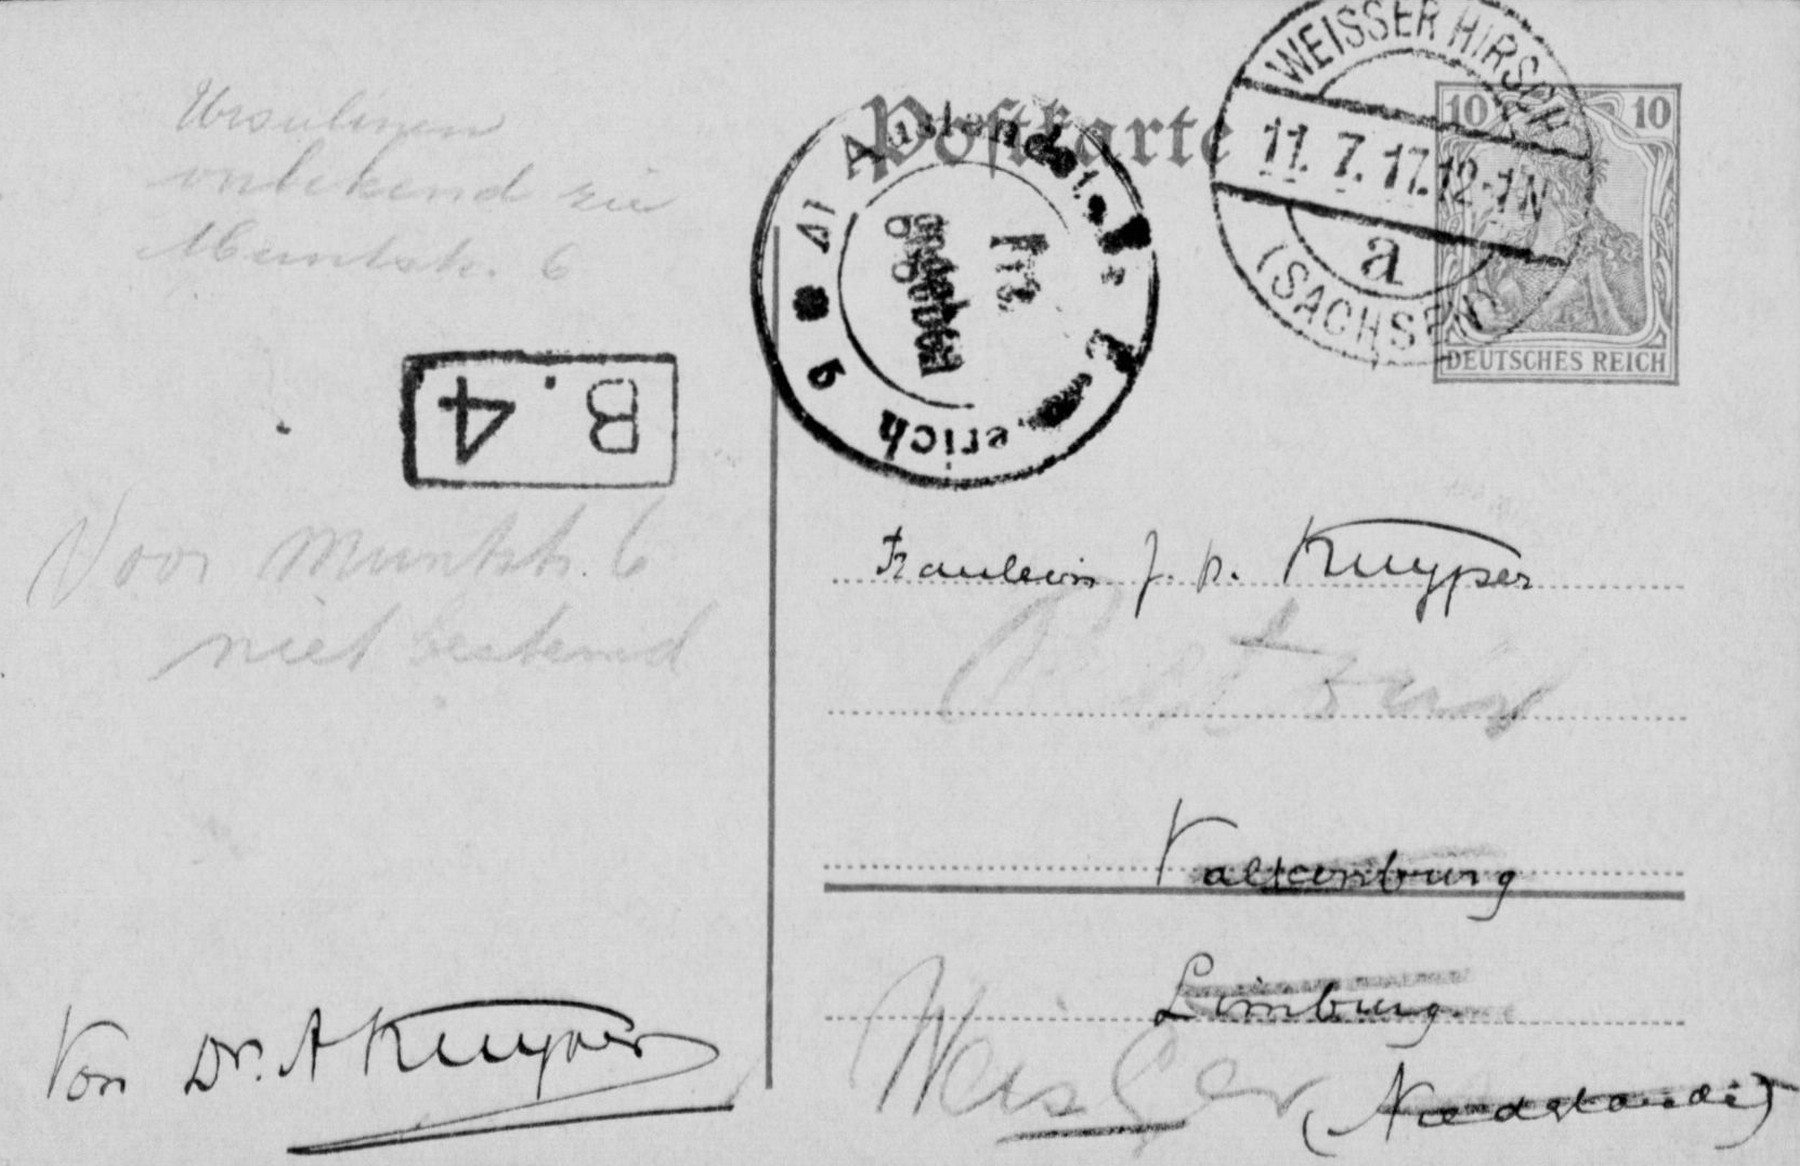 Postkarte
WEISSER HIRSCH
11.7.17.12-1N
a
(SACHSEN)
10 10
DEUTSCHES REICH
Frz.
gegeben
Ursulinen
onbekend zie
Muntstr. 6
B. 4
Voor Muntstr. 6
niet bestemd
Fraulein J. H. Kuyper
Valkenburg
Limburg
(Niederlande)
Weisser
Von Dr. A Kuyper